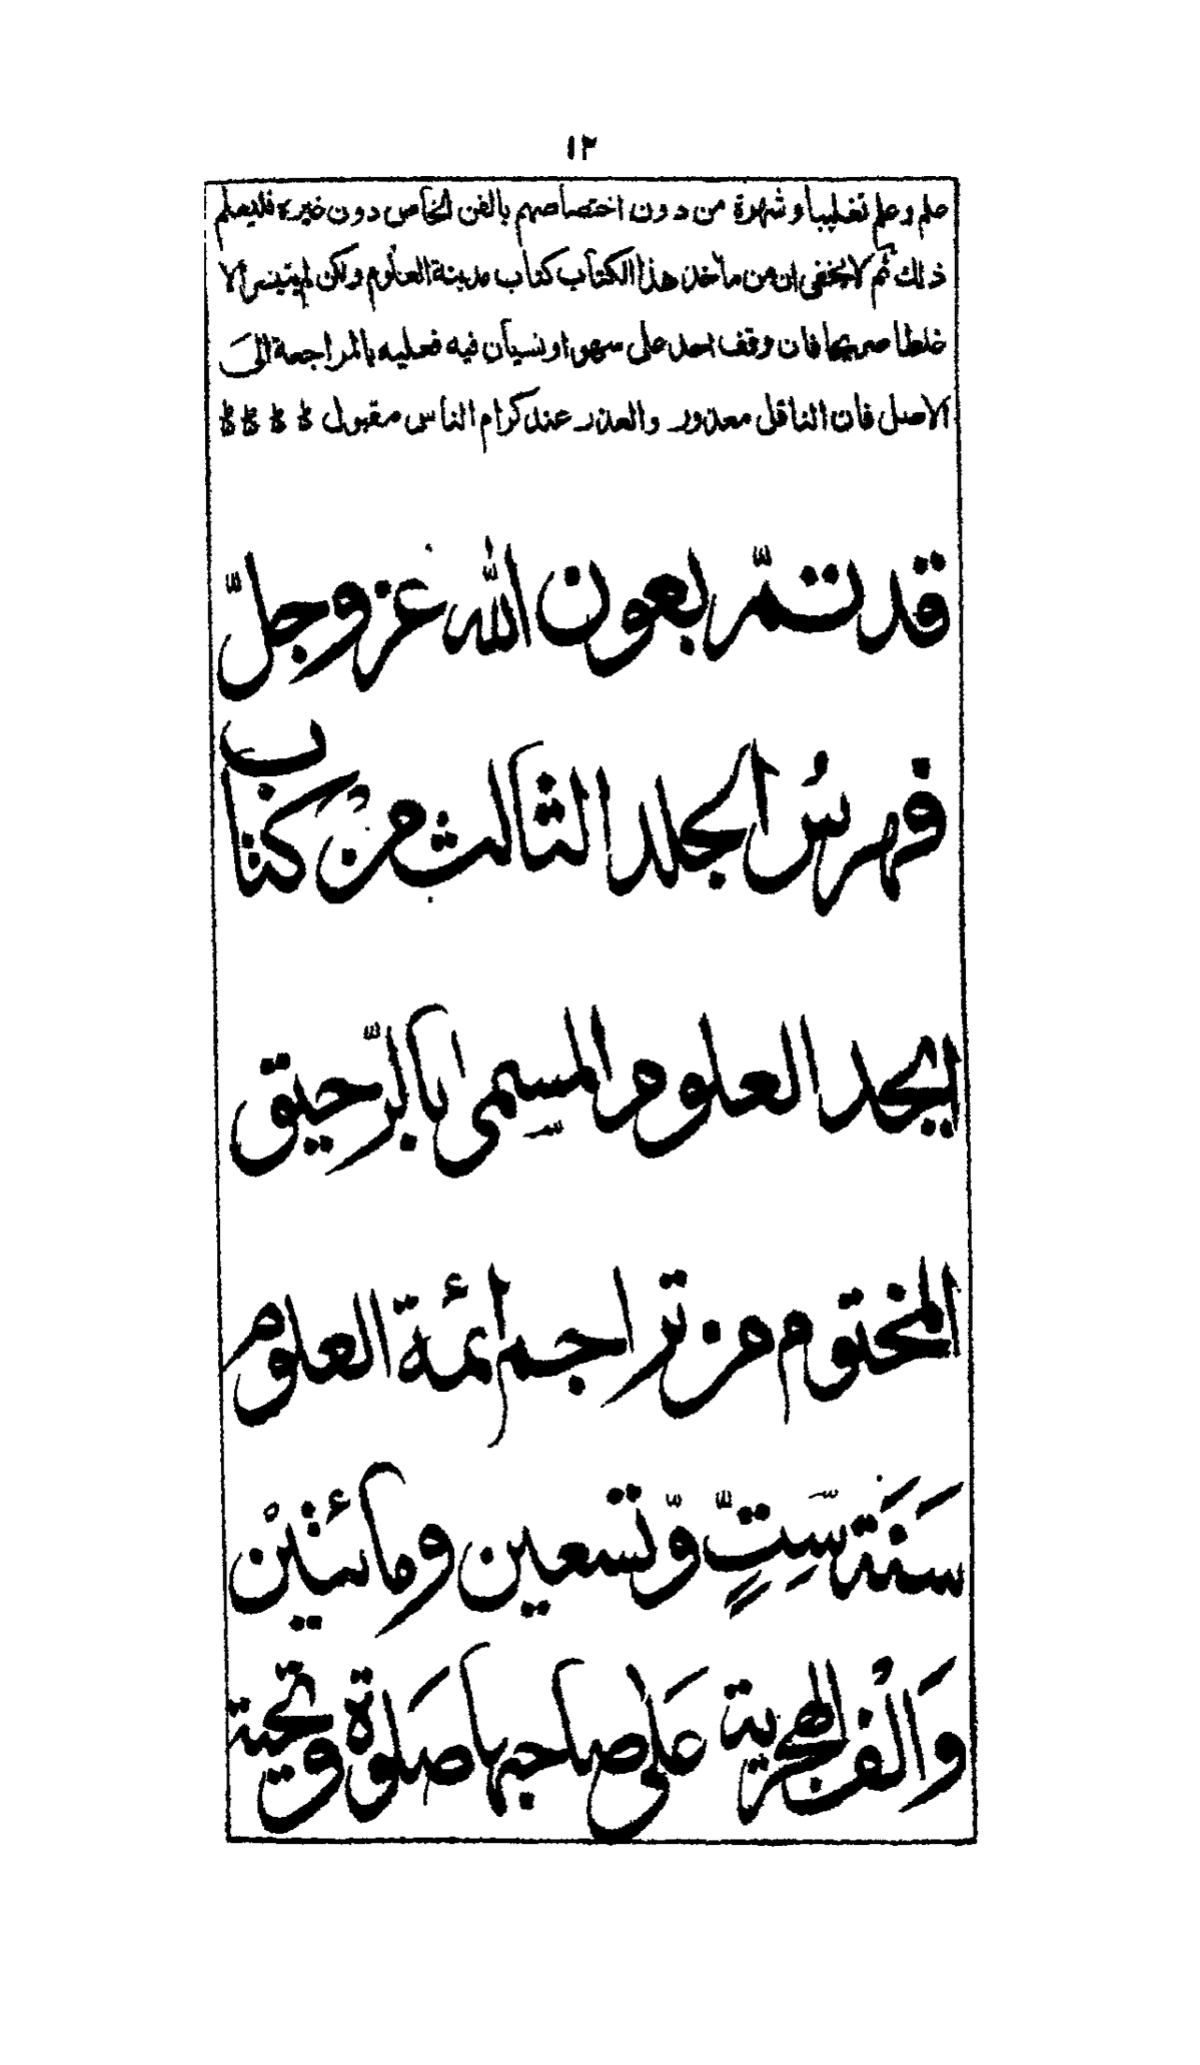 ١٢
علم وعلم تغليبا وشهرة من دون اختصاصهم بالفن الخاص دون غيره فليعلم
ذلك ثم لا يخفى ان من مآخذ هذا الكتاب كتاب مدينة العلوم ولكن لم يتيسر الا
غلطا صريحا فان وقف احد على سهو او نسيان فيه فعليه بالمراجعة الى
الاصل فان الناقل معذور والعذر عند كرام الناس مقبول
قد تمّ بعون الله عز وجلّ
فهرسُ الجلد الثالث منْ كتاب
ابجد العلوم المسمى بالرّحيق
المختوم من تراجم ائمة العلوم
سَنَة سِتٍّ وّتسعين ومائتينْ
وَالْف الهجرية عَلى صاحبها صَلوة وتحية